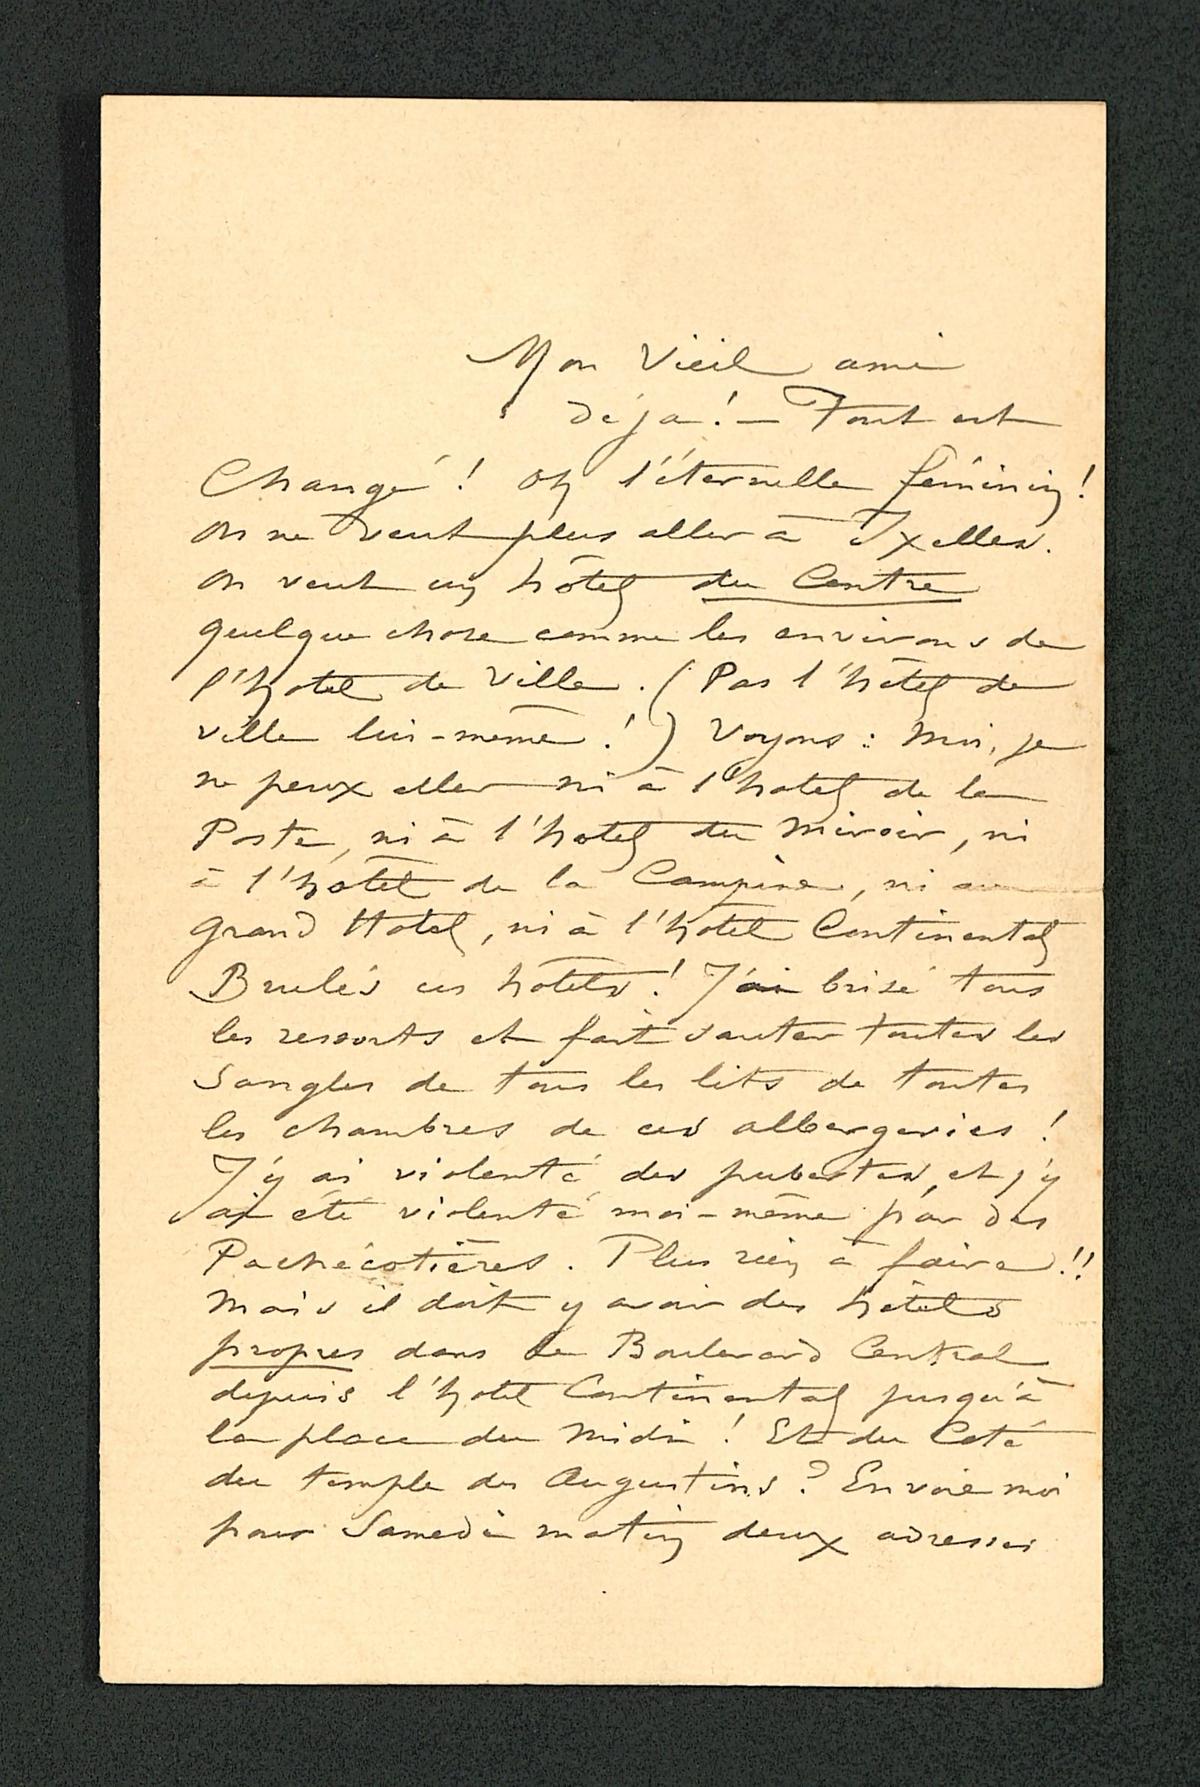 Mon Vieil ami
déja! — Tout est
Changé! Oh l'éternelle féminin!
On ne veut plus aller à Ixelles.
On veut un hôtel du Centre
quelque chose comme les environs de
l'hotel de Ville. (Pas l'hôtel de
ville lui-même!) Voyons: Moi, je
ne peux aller ni à l'hotel de la
Poste, ni à l'hotel du Miroir, ni
à l'hôtel de la Campine, ni au
Grand Hotel, ni à l'hôtel Continental
Brulés ces hôtels! J'ai brisé tous
les ressorts et fait sauter toutes les
Sangles de tous les lits de toutes
les chambres de ces albergeries!
J'y ai violenté des pubertes, et j'y
ai été violenté moi-même par des
Pachécotières. Plus rien à faire!!
Mais il doit y avoir des hôtels
propres dans le Boulevard Central
depuis l'hotel Continental jusqu'à
la place du Midi! Et du Coté
du temple des Augustins? Envoie moi
pour Samedi matin deux adresses